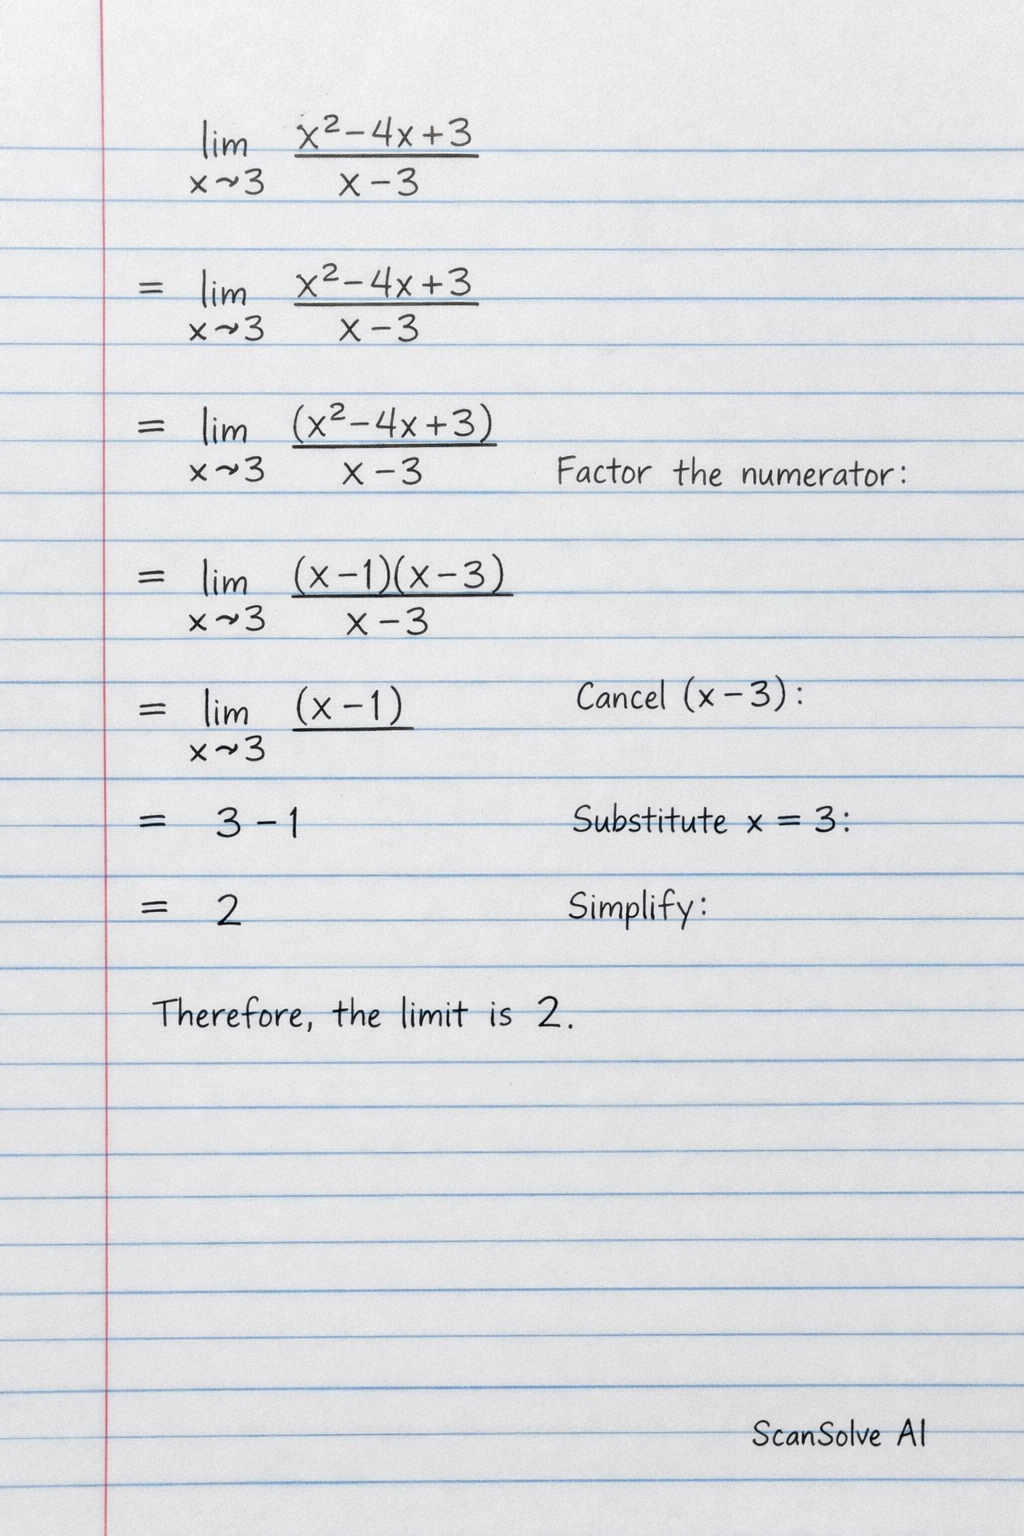 lim x²-4x+3
x~3 x-3
= lim x²-4x+3
x~3 x-3
= lim (x²-4x+3)
x~3 x-3 Factor the numerator:
= lim (x-1)(x-3)
x~3 x-3
= lim (x-1) Cancel (x-3):
x~3
= 3-1 Substitute x = 3:
= 2 Simplify:
Therefore, the limit is 2.
ScanSolve AI